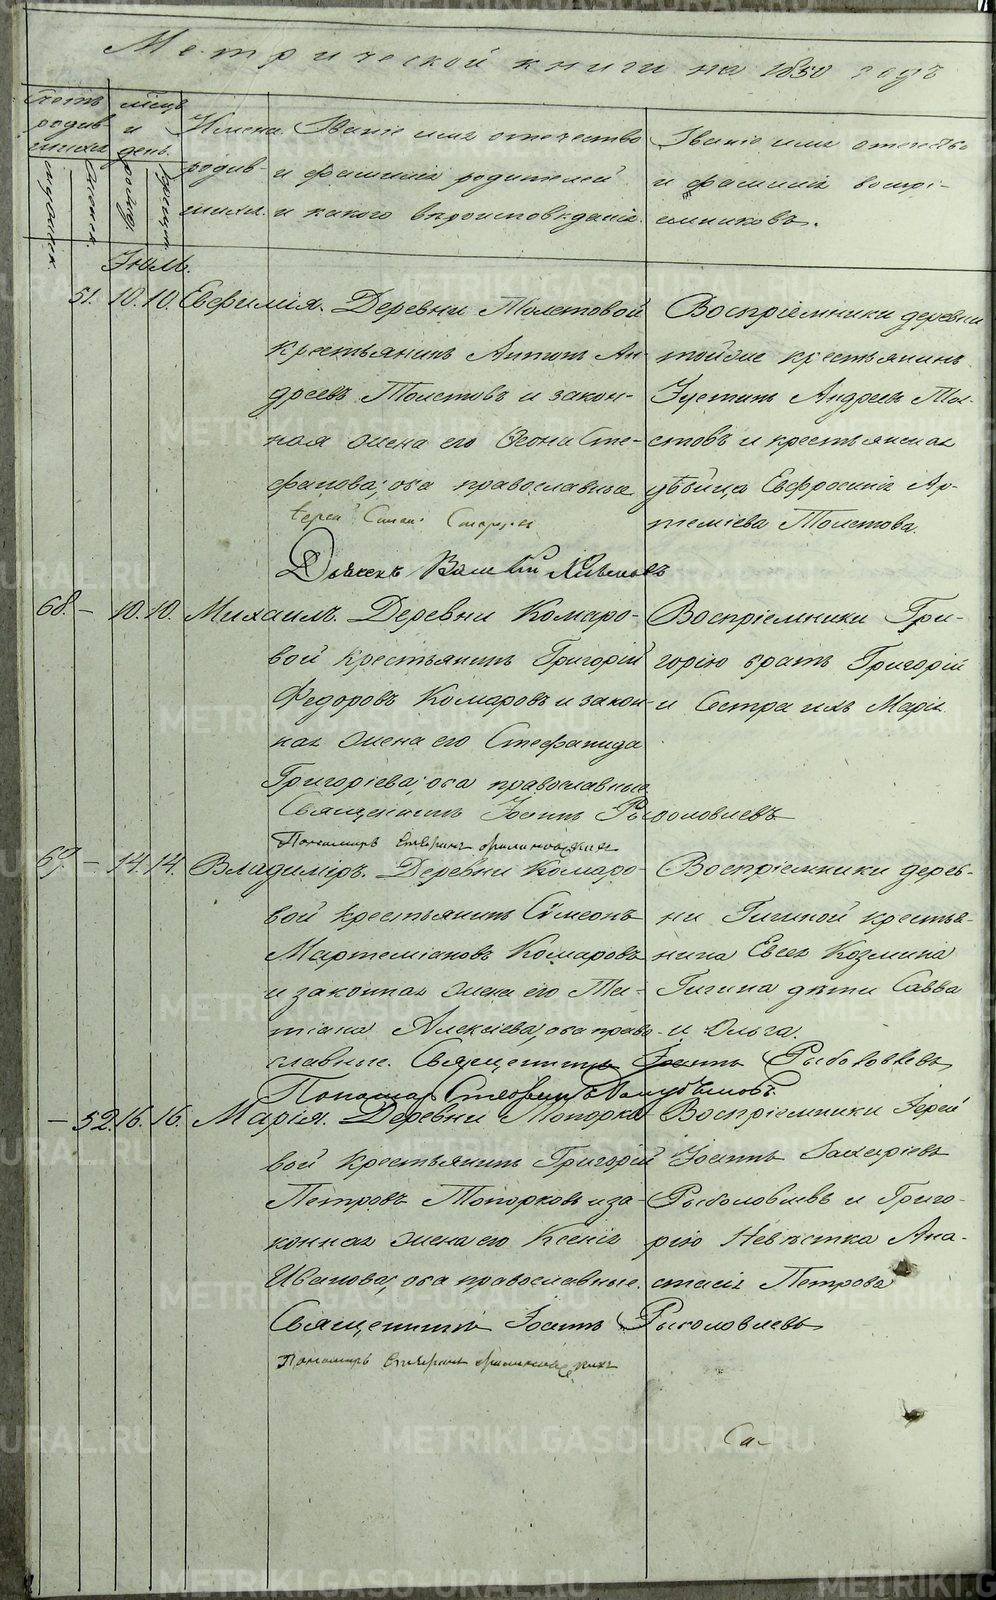 Метрической книги на 1850 годъ
Счетъ родив шихся
мужеска.
Женска.
месяцъ и день.
рожден.
крещен.
Имена родив- шихся.
Званіе имя отечество
и фамилія родителей
и какого вѣроисповѣданія.
Званіе имя отечество
и фамилія воспрі-
емниковъ.
Іюль.
51. 10. 10. Евфимія. Деревни Толстовой
крестьянинъ Антонъ Ан-
дреевъ Толстовъ и закон-
ная жена его Сте-
фанова; оба православные
Воспріемники деревни
тойже крестьянинъ
Іустинъ Андреевъ Тол-
стовъ и крестьянская
дѣвица Евфросинія Ар-
теміева Толстова.
68. – 10. 10. Михаилъ. Деревни Комаро-
вой крестьянинъ Григорій
Федоровъ Комаровъ и закон-
ная жена его Стефанида
Григоріева; оба православные
Священникъ Іоаннъ Рыболовлевъ
Пономарь
Воспріемники Гри-
горію братъ Григорій
и Сестра ихъ Марія
69. – 14. 14. Владиміръ. Деревни Комаро-
вой крестьянинъ Сѵмеонъ
Мартеміановъ Комаровъ
и законная жена его Та-
тіана Алексіева; оба право-
славные. Священникъ Іоаннъ Рыболовлевъ
Пономарь
Воспріемники дерев-
ни Гилиной крестья-
нина Евсея Козмина
Гилина дѣти Савва
и Ольга.
– 52. 16. 16. Марія. Деревни Топорко-
вой крестьянинъ Григорій
Петровъ Топорковъ и за-
конная жена его Ксенія
Иванова; оба православные.
Священникъ Іоаннъ Рыболовлевъ
Пономарь
Воспріемники Іерей
Іоаннъ Захаріевъ
Рыболовлевъ и Григо-
рію Невѣстка Ана-
стасія Петрова
METRIKI.GASO-URAL.RU